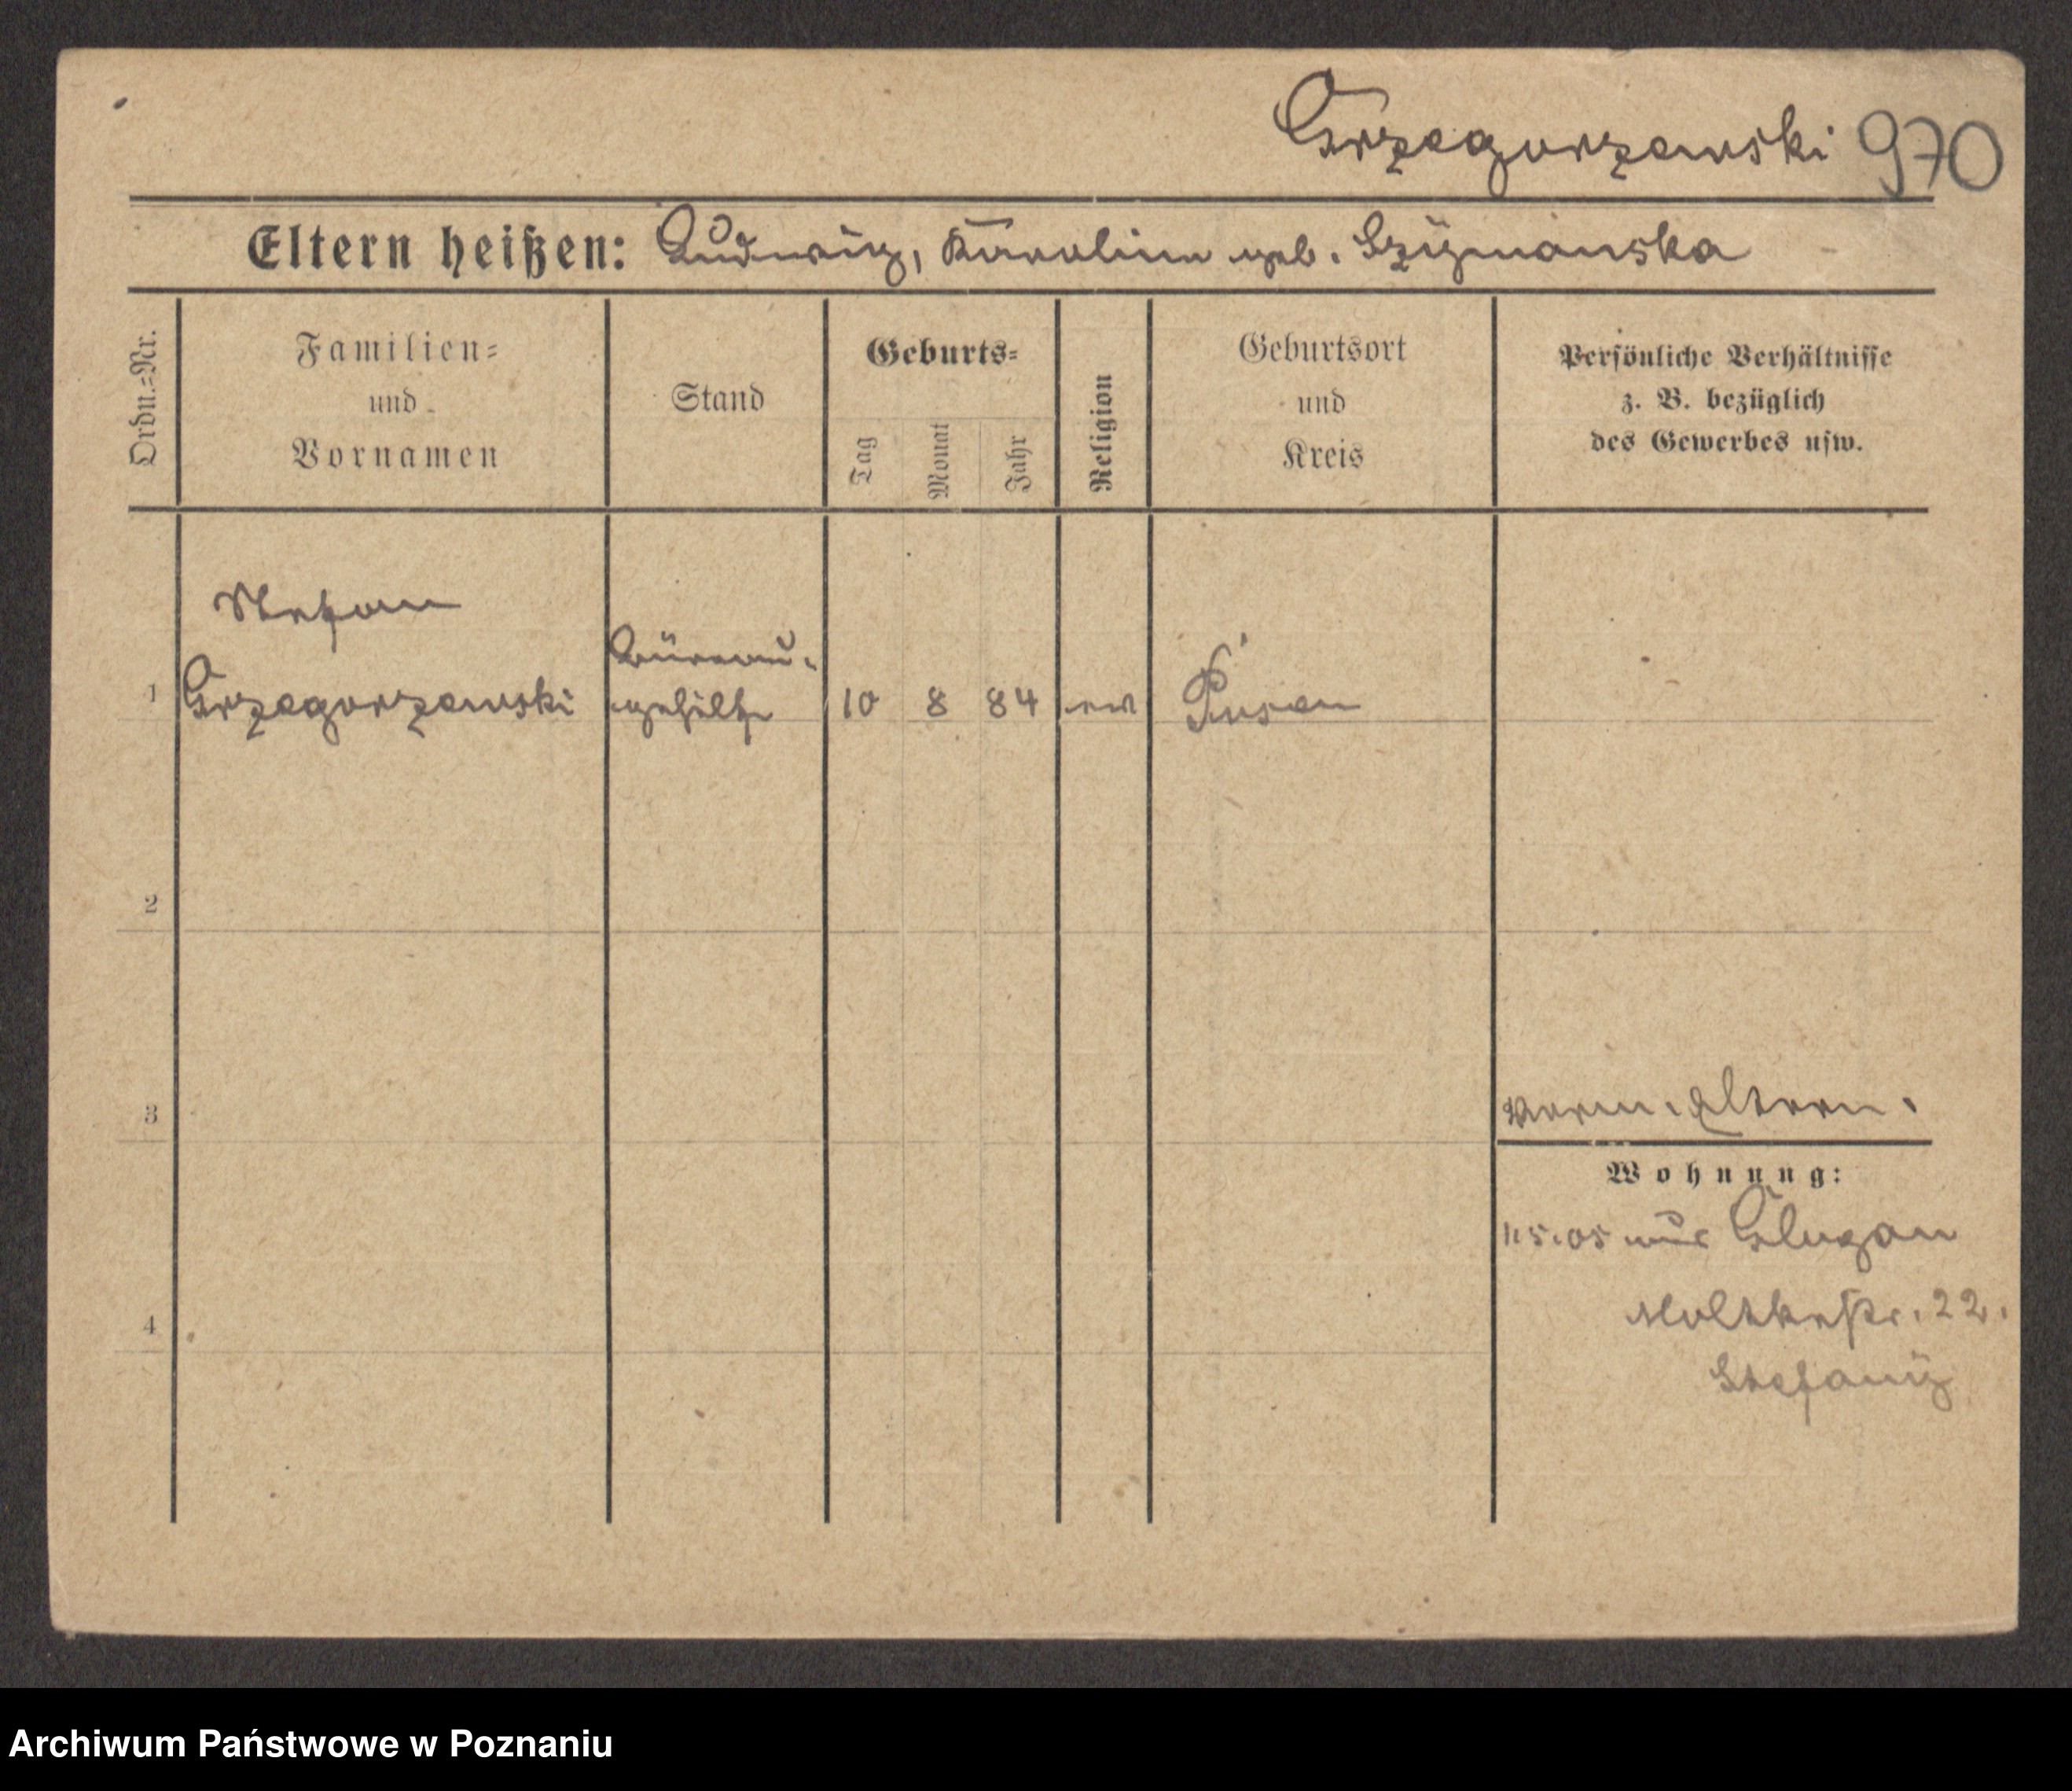 Grzegorzewski 970
Eltern heißen: Ludwig, Karoline geb. Szymanska
Ordn.=Nr.
Familien=
und
Vornamen
Stand
Geburts=
Tag
Monat
Jahr
Religion
Geburtsort
und
Kreis
Persönliche Verhältnisse
z. B. bezüglich
des Gewerbes usw.
Stefan
Büreau-
1 Grzegorzewski gehilfe 10 8 84 Posen
2
3
Eltern.
Wohnung:
1.5.05 aus Glogau
4
Moltkestr. 22.
Archiwum Państwowe w Poznaniu